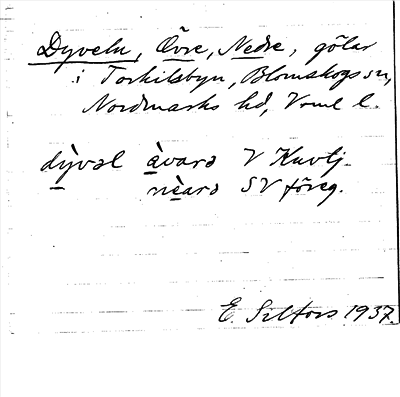 Dyveln, Övre, Nedre, gölar
i Torkilsbyn, Blomskogs sn,
Nordmarks hd, Vrml l.
dỳvəl àvarə V Kuvtj.
nèarə SV föreg.
E. 1937.